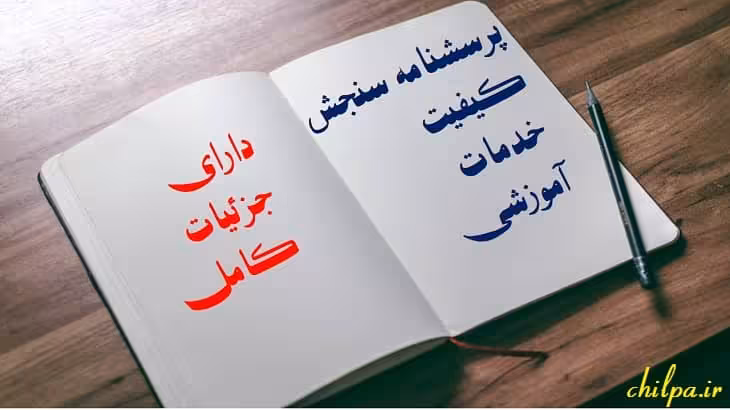 پرسشنامه سنجش
کیفیت
خدمات
آموزشی
دارای
جزئیات
کامل
chilpa.ir